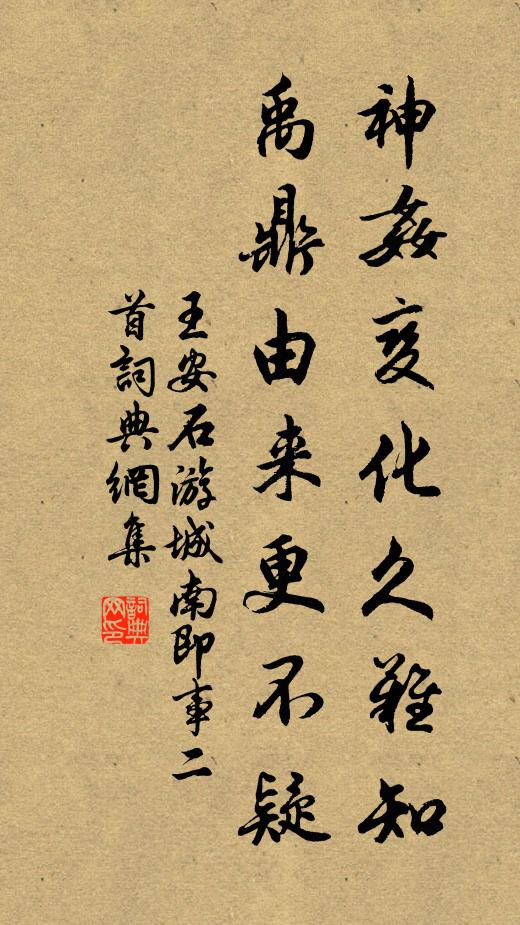 神姦变化久難知
禹鼎由来更不疑
王安石游城南即事二
首詞典網集
詞典网印